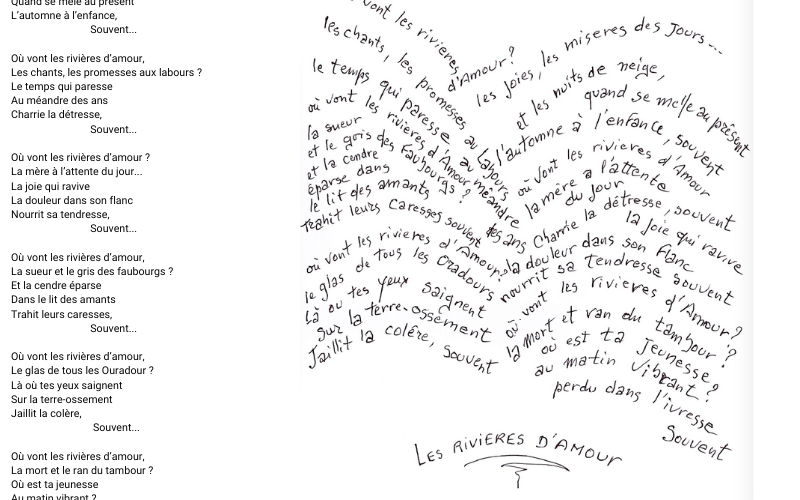 Quand se mêle au présent
L'automne à l'enfance,
Souvent...
Où vont les rivières d'amour,
Les chants, les promesses aux labours ?
Le temps qui paresse
Au méandre des ans
Charrie la détresse,
Souvent...
Où vont les rivières d'amour ?
La mère à l'attente du jour...
La joie qui ravive
La douleur dans son flanc
Nourrit sa tendresse,
Souvent...
Où vont les rivières d'amour,
La sueur et le gris des faubourgs ?
Et la cendre éparse
Dans le lit des amants
Trahit leurs caresses,
Souvent...
Où vont les rivières d'amour,
Le glas de tous les Ouradour ?
Là où tes yeux saignent
Sur la terre-ossement
Jaillit la colère,
Souvent...
Où vont les rivières d'amour,
La mort et le ran du tambour ?
Où est ta jeunesse
Au matin vibrant ?
vont les rivieres
d'Amour?
les joies, les miseres des Jours...
et les nuits de neige,
quand se melle au présent
l'automne à l'enfance, souvent
où vont les rivieres d'Amour
les chants, les promesses
au labours
le temps qui paresse au méandre
des ans charrie la détresse, souvent
où vont les rivieres d'Amour
la mère a l'attente
du jour
la joie qui ravive
la douleur dans son flanc
nourrit sa tendresse souvent
où vont les rivieres d'Amour?
la sueur
et le gris des Faubourgs?
et la cendre
éparse dans
le lit des amants
trahit leurs caresses souvent
où vont les rivieres d'Amour?
le glas de tous les Oradours
Là où tes yeux saignent
sur la terre-ossement
Jaillit la colére, souvent
où vont les rivieres d'Amour?
la mort et ran du tambour?
où est ta Jeunesse?
au matin vibrant?
perdu dans l'ivresse
Souvent
LES RIVIERES D'AMOUR